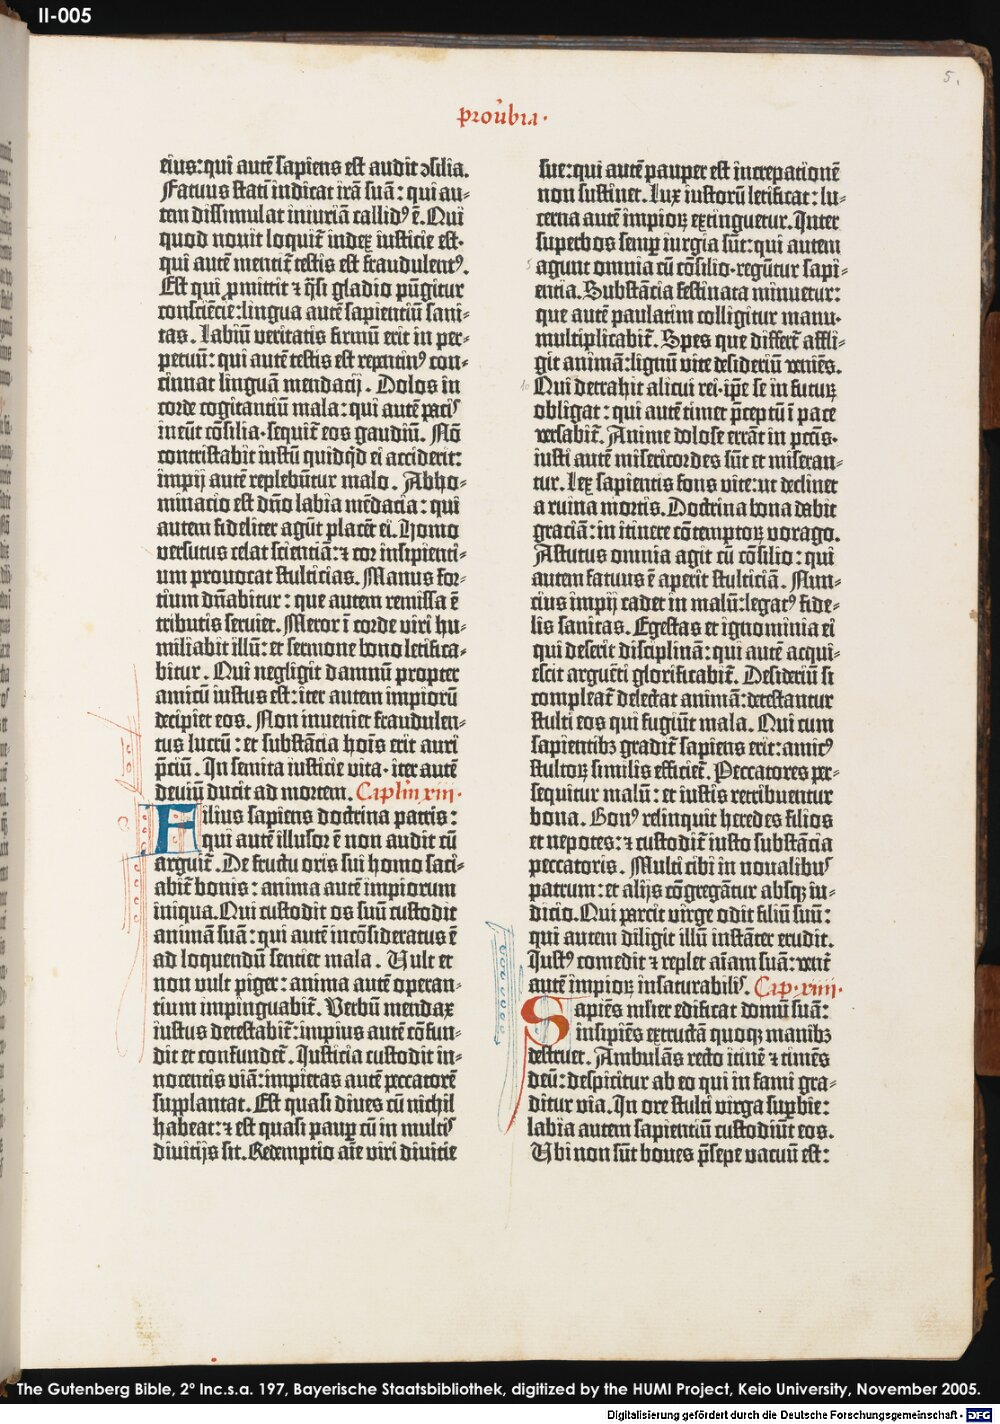 II-005
5.
prou̾bia·
eius:qui autē sapiens est audit ↄsilia.
Fatuus statī indicat irā suā: qui au-
tem dissimulat iniuriā callidꝰ ē. Qui
quod nouit loquit̄ index iusticie est·
qui autē mentit̄ testis est fraudulentꝰ.
Est qui ꝓmittit ⁊ q̄si gladio pūgitur
consciēcie:lingua autē sapientiū sani-
tas. Labiū veritatis firmū erit in per-
petuū: qui autē testis est repentinꝰ con-
cinnat linguā mendacij. Dolos in
corde cogitantiū mala: qui autē pacis
ineūt cōsilia·sequit̄ eos gaudiū. Nō
contristabit iustū quidq̇d ei acciderit:
impij autē replebūtur malo. Abho-
minacio est dn̄o labia mēdacia: qui
autem fideliter agūt placēt ei. Homo
versutus celat scientiā: ⁊ cor insipienti-
um prouocat stulticias. Manus for-
tium dn̄abitur: que autem remissa ē
tributis seruiet. Meror ī corde viri hu-
miliabit illū: et sermone bono letifica-
bitur. Qui negligit damnū propter
amicū iustus est: iter autem impiorū
decipiet eos. Non inueniet fraudulen-
tus lucrū: et substācia hoīs erit auri
p̄ciū. In semita iusticie vita· iter autē
deuiū ducit ad mortem. Caplm̄ xiii·
Filius sapiens doctrina patris:
qui autē illusor ē non audit cū
arguit̄. De fructu oris sui homo saci-
abit̄ bonis: anima autē impiorum
iniqua. Qui custodit os suū custodit
animā suā: qui autē incōsideratus ē
ad loquendū sentiet mala. Vult et
non vult piger: anima autē operan-
tium impinguabit̄. Verbū mendax
iustus detestabit̄: impius autē cōfun-
dit et confundet̄. Iusticia custodit in-
nocentis viā: impietas autē peccatorē
supplantat. Est quasi diues cū nichil
habeat: ⁊ est quasi paup̱ cū in multis
diuitijs sit. Redemptio aīe viri diuicie
sue: qui autē pauper est increpationē
non sustinet. Lux iustorū letificat: lu-
cerna autē impioꝝ extinguetur. Inter
superbos semp̱ iurgia sūt: qui autem
5
agunt omnia cū cōsilio·regūtur sapi-
entia. Substācia festinata minuetur:
que autē paulatim colligitur manu·
multiplicabit̄. Spes que differt̄ affli-
git animā: lignū vite desideriū veniēs.
10
Qui detrahit alicui rei·ip̄e se in futuꝝ
obligat: qui autē timet p̄ceptū ī pace
versabit̄. Anime dolose errāt in pctīs·
iusti autē misericordes sūt et miseran-
tur. Lex sapientis fons vite: ut declinet
a ruina mortis. Doctrina bona dabit
graciā: in itinere cōtemptoꝝ vorago.
Astutus omnia agit cū cōsilio: qui
autem fatuus ē aperit stulticiā. Nun-
cius impij cadet in malū: legatꝰ fide-
lis sanitas. Egestas et ignominia ei
qui deserit disciplinā: qui autē acqui-
escit arguēti glorificabit̄. Desideriū si
compleat̄ delectat animā: detestantur
stulti eos qui fugiūt mala. Qui cum
sapientibꝫ gradit̄ sapiens erit: amicꝰ
stultoꝝ similis efficiet̄. Peccatores per-
sequitur malū: et iustis retribuentur
bona. Bonꝰ relinquit heredes filios
et nepotes: ⁊ custodit̄ iusto substācia
peccatoris. Multi cibi in noualibus
patrum: et alijs cōgregātur absqꝫ iu-
dicio. Qui parcit virge odit filiū suū:
qui autem diligit illū instāter erudit.
Iustꝰ comedit ⁊ replet aīam suā: vent̄
autē impioꝝ insaturabilis. Cap·xiiii·
Sapiēs ml̄ier edificat domū suā:
insipiēs extructā quoqꝫ manibꝫ
destruet. Ambulās recto itinē ⁊ timēs
deū: despicitur ab eo qui in fami gra-
ditur via. In ore stulti virga sup̱bie:
labia autem sapientiū custodiūt eos.
Vbi non sūt boues p̄sepe vacuū est:
The Gutenberg Bible, 2º Inc.s.a. 197, Bayerische Staatsbibliothek, digitized by the HUMI Project, Keio University, November 2005.
Digitalisierung gefördert durch die Deutsche Forschungsgemeinschaft - DFG